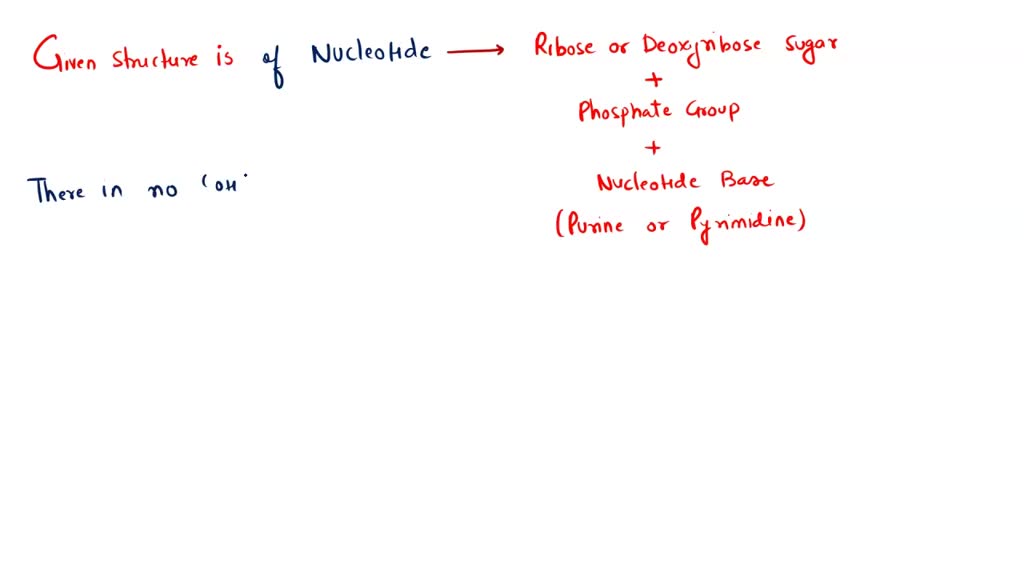 Given structure is of Nucleotide → Ribose or Deoxyribose Sugar
+
Phosphate Group
+
There in no 'OH' Nucleotide Base
(Purine or Pyrimidine)